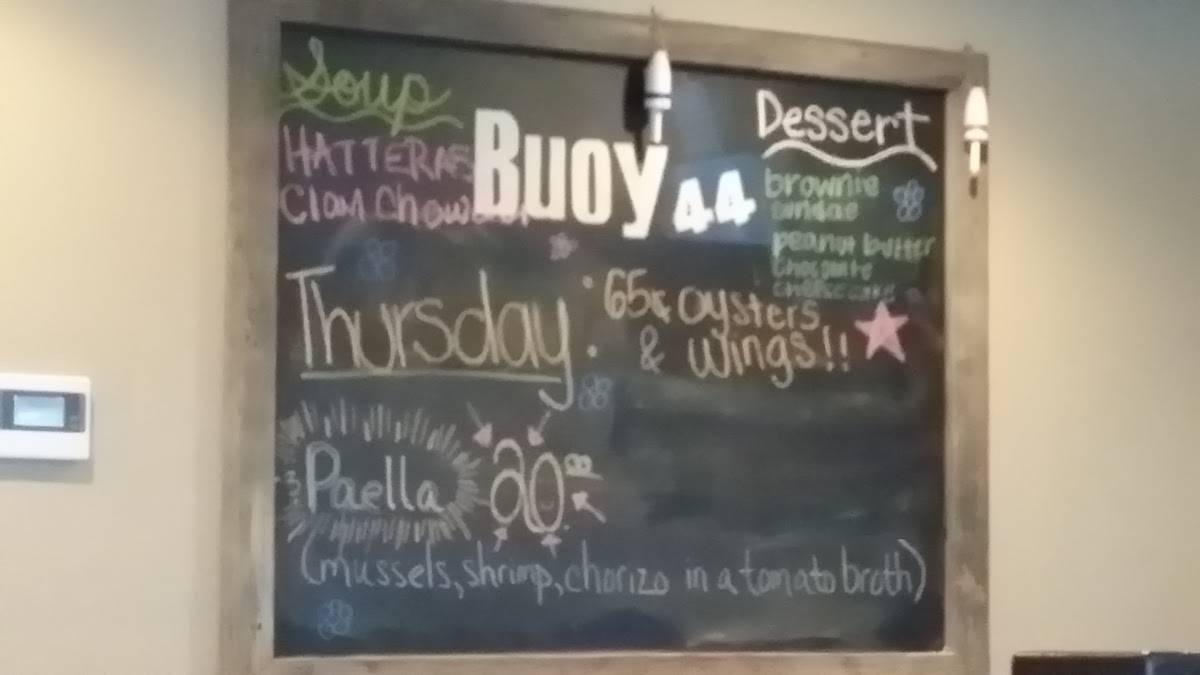 Soup
HATTERAS
Clam Chowder
Buoy 44
Dessert
brownie
sundae
peanut butter
chocolate
cheesecake
Thursday: 65¢ oysters
& wings!!
Paella 20.00
(mussels, shrimp, chorizo in a tomato broth)